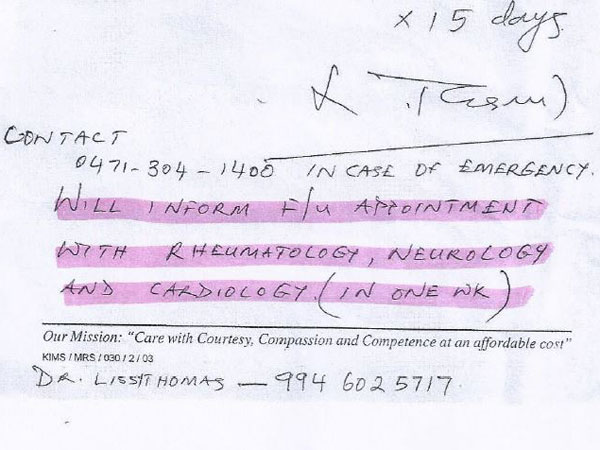 x 15 days
CONTACT
0471-304-1400 IN CASE OF EMERGENCY.
WILL INFORM F/U APPOINTMENT
WITH RHEUMATOLOGY, NEUROLOGY
AND CARDIOLOGY. (IN ONE WK)
Our Mission: "Care with Courtesy, Compassion and Competence at an affordable cost"
KIMS / MRS / 030 / 2 / 03
DR. LISSYTHOMAS — 994 602 5717.